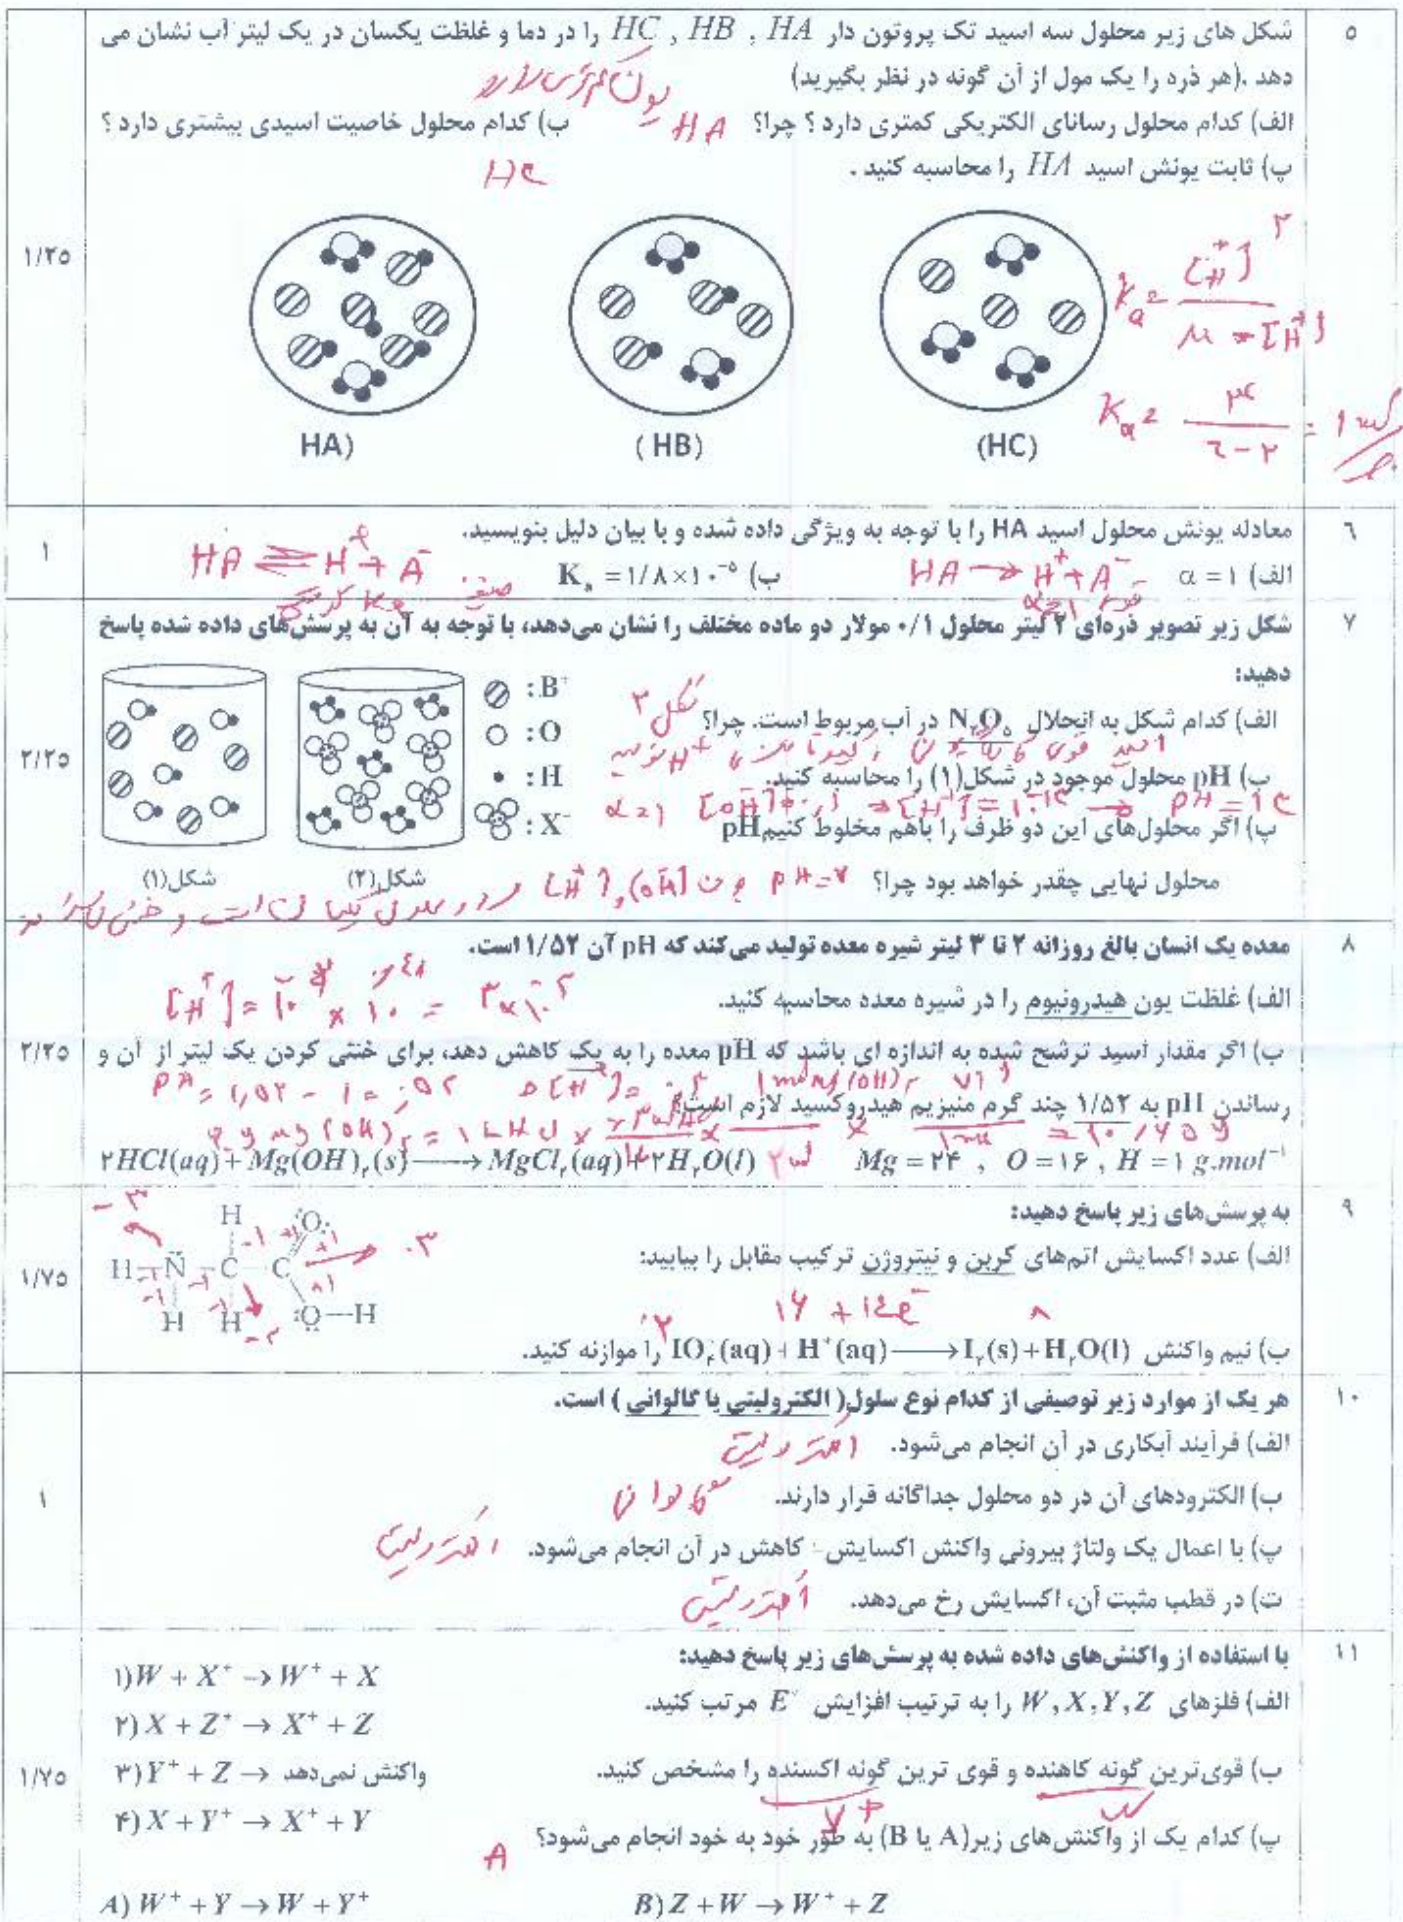 ۵
شکل های زیر محلول سه اسید تک پروتون دار HA , HB , HC را در دما و غلظت یکسان در یک لیتر آب نشان می
دهد .(هر ذره را یک مول از آن گونه در نظر بگیرید)
الف) کدام محلول رسانای الکتریکی کمتری دارد ؟ چرا؟ HA
ب) کدام محلول خاصیت اسیدی بیشتری دارد ؟
HC
پ) ثابت یونش اسید HA را محاسبه کنید .
۱/۲۵
HA)
( HB)
(HC)
۶
معادله یونش محلول اسید HA را با توجه به ویژگی داده شده و با بیان دلیل بنویسید.
۱
الف) α = ۱ HA → H⁺ + A⁻
ب) Kₐ = ۱/۸×۱۰⁻⁵ HA ⇌ H⁺ + A⁻
۷
شکل زیر تصویر ذره‌ای ۲ لیتر محلول ۰/۱ مولار دو ماده مختلف را نشان می‌دهد، با توجه به آن به پرسش‌های داده شده پاسخ
دهید:
الف) کدام شکل به انحلال N₂O₅ در آب مربوط است. چرا؟ شکل ۲
ب) pH محلول موجود در شکل(۱) را محاسبه کنید.
پ) اگر محلول‌های این دو ظرف را باهم مخلوط کنیم pH
محلول نهایی چقدر خواهد بود چرا؟ pH=۷
: B⁺
: O
: H
: X⁻
شکل(۲)
شکل(۱)
۲/۲۵
۸
معده یک انسان بالغ روزانه ۲ تا ۳ لیتر شیره معده تولید می‌کند که pH آن ۱/۵۲ است.
الف) غلظت یون هیدرونیوم را در شیره معده محاسبه کنید.
ب) اگر مقدار اسید ترشح شده به اندازه ای باشد که pH معده را به یک کاهش دهد، برای خنثی کردن یک لیتر از آن و
۲/۲۵
رساندن pH به ۱/۵۲ چند گرم منیزیم هیدروکسید لازم است؟
۲HCl(aq) + Mg(OH)₂(s) ⟶ MgCl₂(aq) + ۲H₂O(l) Mg = ۲۴ , O = ۱۶ , H = ۱ g.mol⁻¹
۹
به پرسش‌های زیر پاسخ دهید:
الف) عدد اکسایش اتم‌های کربن و نیتروژن ترکیب مقابل را بیابید:
۱/۷۵
ب) نیم واکنش IO₄⁻(aq) + H⁺(aq) ⟶ I₂(s) + H₂O(l) را موازنه کنید.
۱۰
هر یک از موارد زیر توصیفی از کدام نوع سلول( الکترولیتی یا گالوانی ) است.
الف) فرآیند آبکاری در آن انجام می‌شود. الکترولیتی
ب) الکترودهای آن در دو محلول جداگانه قرار دارند. گالوانی
۱
پ) با اعمال یک ولتاژ بیرونی واکنش اکسایش- کاهش در آن انجام می‌شود. الکترولیتی
ت) در قطب مثبت آن، اکسایش رخ می‌دهد. الکترولیتی
۱۱
با استفاده از واکنش‌های داده شده به پرسش‌های زیر پاسخ دهید:
الف) فلزهای W , X , Y , Z را به ترتیب افزایش E° مرتب کنید.
ب) قوی‌ترین گونه کاهنده و قوی ترین گونه اکسنده را مشخص کنید.
پ) کدام یک از واکنش‌های زیر(A یا B) به طور خود به خود انجام می‌شود؟ A
۱) W + X⁺ → W⁺ + X
۲) X + Z⁺ → X⁺ + Z
۳) Y⁺ + Z → واکنش نمی‌دهد
۴) X + Y⁺ → X⁺ + Y
۱/۷۵
A) W⁺ + Y → W + Y⁺
B) Z + W → W⁺ + Z